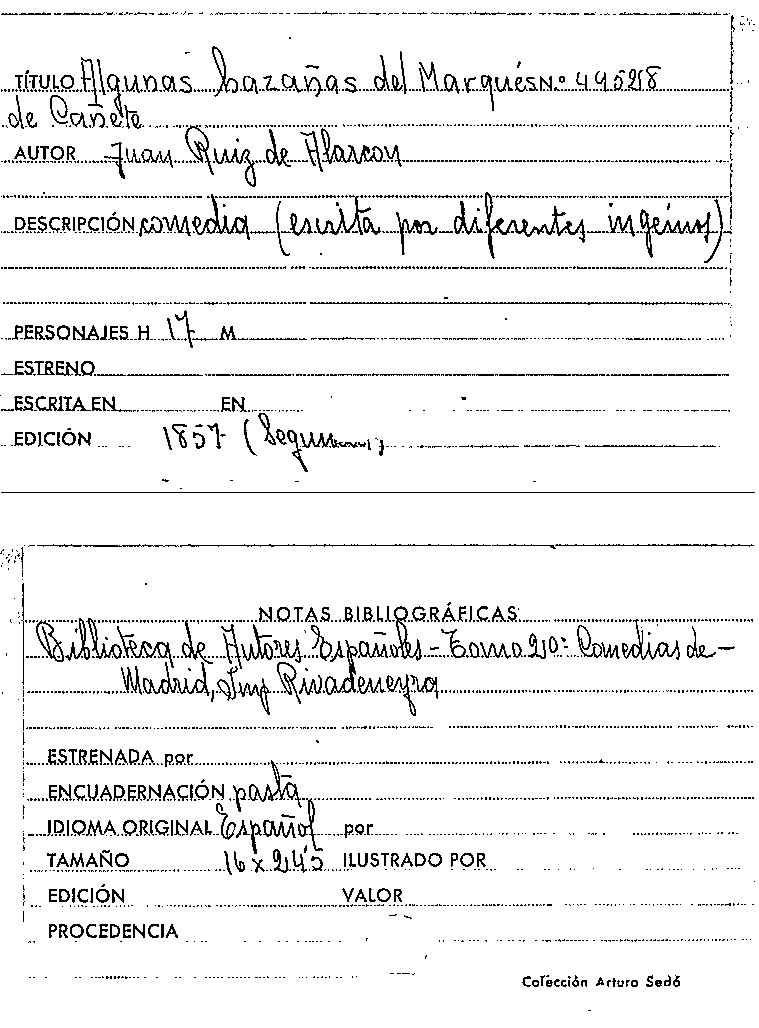 TÍTULO Algunas hazañas del Marqués N.º 495218
de Cañete
AUTOR Juan Ruiz de Alarcon
DESCRIPCIÓN comedia (escrita por diferentes ingenios)
PERSONAJES H 17 M
ESTRENO
ESCRITA EN EN
EDICIÓN 1857
NOTAS BIBLIOGRÁFICAS
Biblioteca de Autores Españoles - Tomo 20: Comedias de -
Madrid, Imp Rivadeneyra
ESTRENADA por
ENCUADERNACIÓN pasta
IDIOMA ORIGINAL Español por
TAMAÑO 16 x 24'5 ILUSTRADO POR
EDICIÓN VALOR
PROCEDENCIA
Colección Arturo Sedó